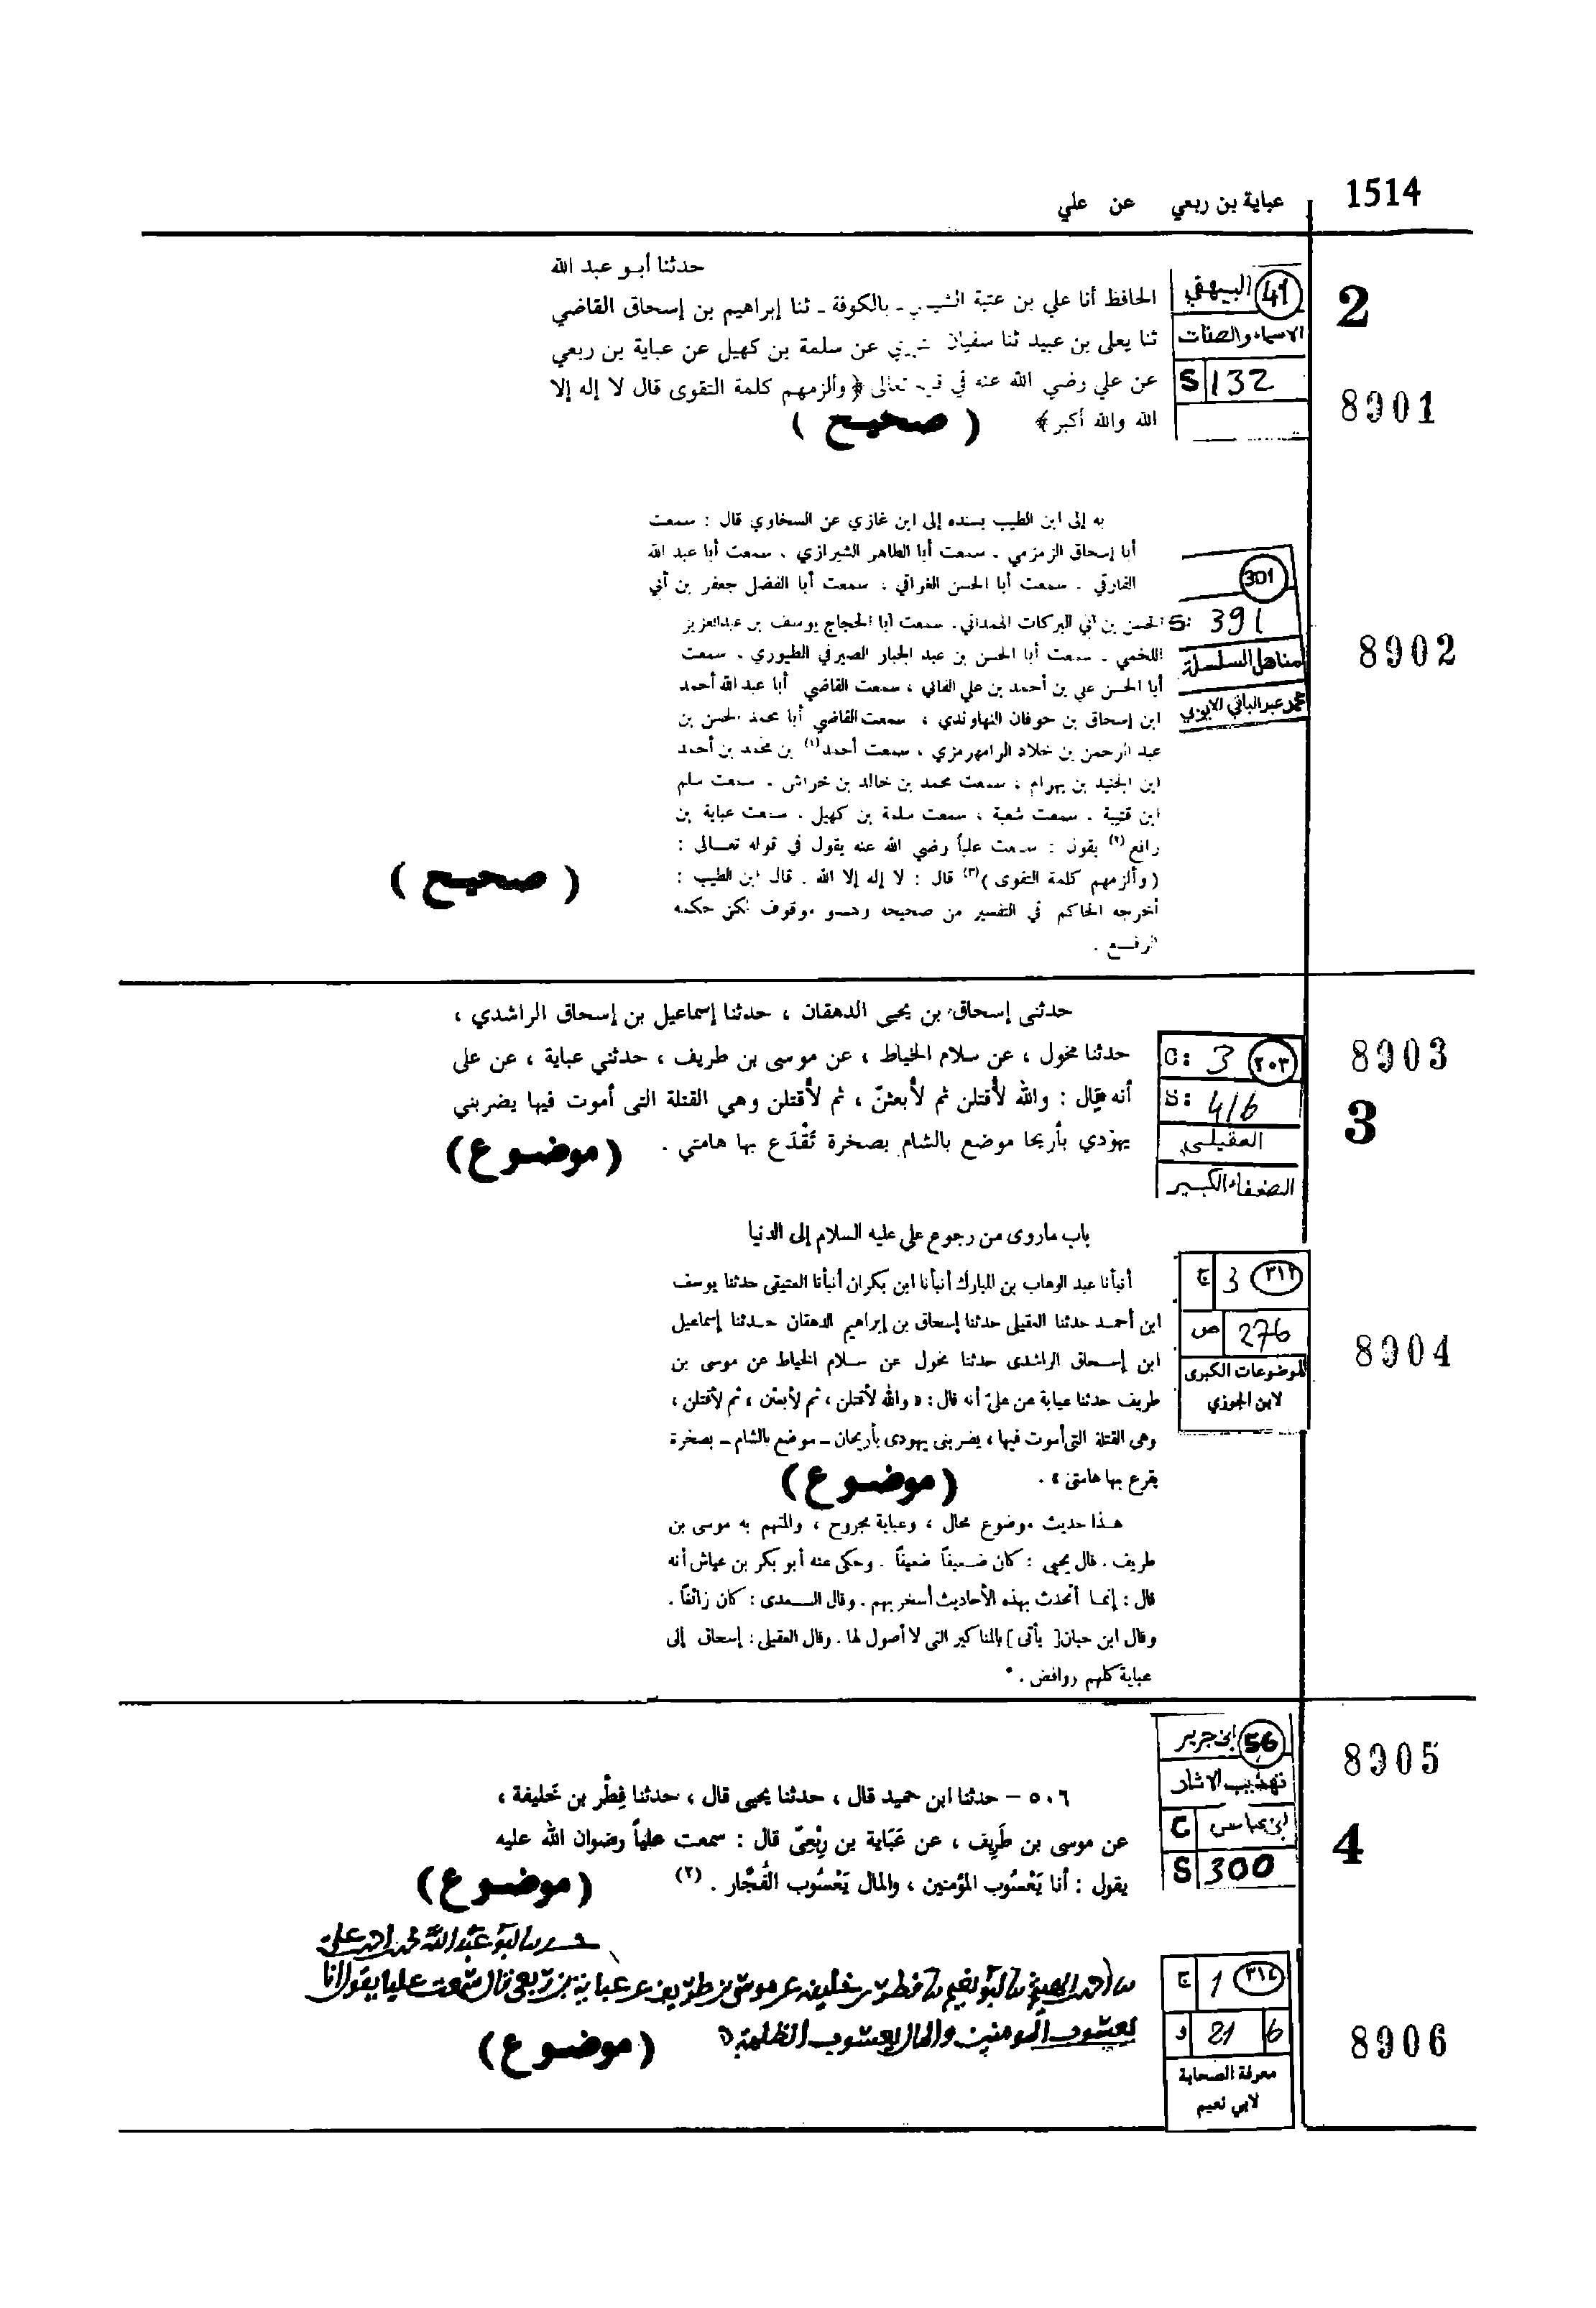 1514
عباية بن ربعي عن علي
2
8901
41 البيهقي
الاسماء والصفات
S 132
حدثنا أبو عبد الله
الحافظ أنا علي بن عتبة الشيباني ـ بالكوفة ـ ثنا إبراهيم بن إسحاق القاضي
ثنا يعلى بن عبيد ثنا سفيان عن سلمة بن كهيل عن عباية بن ربعي
عن علي رضي الله عنه في تعالى ﴿ وألزمهم كلمة التقوى قال لا إله إلا
الله والله أكبر ﴾
( صحيح )
8902
301
S: 391
مناهل السلسلة
محمد عبد الباقي الايوبي
به إلى ابن الطيب بسنده إلى ابن غازي عن السخاوي قال : سمعت
أبا إسحاق الزمزمي ، سمعت أبا الطاهر الشيرازي ، سمعت أبا عبد الله
الفارقي ، سمعت أبا الحسن الغراقي ، سمعت أبا الفضل جعفر بن أبي
الحسن بن أبي البركات الهمداني ، سمعت أبا الحجاج يوسف بن عبدالعزيز
اللخمي ، سمعت أبا الحسن بن عبد الجبار الصيرفي الطيوري ، سمعت
أبا الحسن علي بن أحمد بن علي الفالي ، سمعت القاضي أبا عبد الله أحمد
ابن إسحاق بن حوفان النهاوندي ، سمعت القاضي أبا محمد الحسن بن
عبد الرحمن بن خلاد الرامهرمزي ، سمعت أحمد (١) بن محمد بن أحمد
ابن الجنيد بن بهرام ، سمعت محمد بن خالد بن خراش ، سمعت سلم
ابن قتيبة ، سمعت شعبة ، سمعت سلمة بن كهيل ، سمعت عباية بن
رافع (٢) يقول : سمعت علياً رضي الله عنه يقول في قوله تعالى :
( وألزمهم كلمة التقوى ) (٣) قال : لا إله إلا الله . قال ابن الطيب :
أخرجه الحاكم في التفسير من صحيحه وهو موقوف لكن حكمه
الرفع .
( صحيح )
8903
3
C: 3 ٢٠٣
S: 416
العقيلي
الضعفاء الكبير
حدثني إسحاق بن يحيى الدهقان ، حدثنا إسماعيل بن إسحاق الراشدي ،
حدثنا مخول ، عن سلام الخياط ، عن موسى بن طريف ، حدثني عباية ، عن على
أنه قال : والله لأقتلن ثم لأبعثنّ ، ثم لأقتلن وهي القتلة التى أموت فيها يضربني
يهودي بأريحا موضع بالشام بصخرة تَقْدَع بها هامتي .
( موضوع )
8904
ج 3 ٣١٢
ص 276
الموضوعات الكبرى
لابن الجوزي
باب ماروى من رجوع علي عليه السلام إلى الدنيا
أنبأنا عبد الوهاب بن المبارك أنبأنا ابن بكران أنبأنا العتيقى حدثنا يوسف
ابن أحمد حدثنا العقيلى حدثنا إسحاق بن إبراهيم الدهقان حدثنا إسماعيل
ابن إسحاق الراشدى حدثنا مخول عن سلام الخياط عن موسى بن
طريف حدثنا عباية عن علىّ أنه قال : « والله لأقتلن ، ثم لأبعثن ، ثم لأقتلن ،
وهى القتلة التى أموت فيها ، يضربنى يهودى بأريحان ـ موضع بالشام ـ بصخرة
يقرع بها هامتى » .
( موضوع )
هذا حديث موضوع محال ، وعباية مجروح ، والمتهم به موسى بن
طريف . قال يحيى : كان ضعيفاً ضعيفاً . وحكى عنه أبو بكر بن عياش أنه
قال : إنما أتحدث بهذه الأحاديث أسخر بهم . وقال السعدى : كان زائفاً .
وقال ابن حبان [ يأتى ] بالمناكير التى لا أصول لها . وقال العقيلى : إسحاق إلى
عباية كلهم روافض .
8905
4
56 ابن جرير
تهذيب الاثار
C ابن عباس
S 300
٥٠٦ – حدثنا ابن حميد قال ، حدثنا يحيى قال ، حدثنا فِطْر بن خَليفة ،
عن موسى بن طَرِيف ، عن عَبَاية بن رِبْعِيّ قال : سمعت علياً رضوان الله عليه
يقول : أنا يَعْسُوب المؤمنين ، والمال يَعْسُوب الفُجَّار . (٢)
( موضوع )
8906
ج 1 ٣١٤
و 21 b
معرفة الصحابة
لابي نعيم
حدثنا أبو عبد الله محمد بن احمد بن علي
ثنا احمد بن الهيثم ثنا أبو نعيم ثنا فطر بن خليفة عن موسى بن طريف عن عباية بن ربعي قال سمعت عليا يقول انا
يعسوب المومنين والمال يعسوب الظلمة
( موضوع )